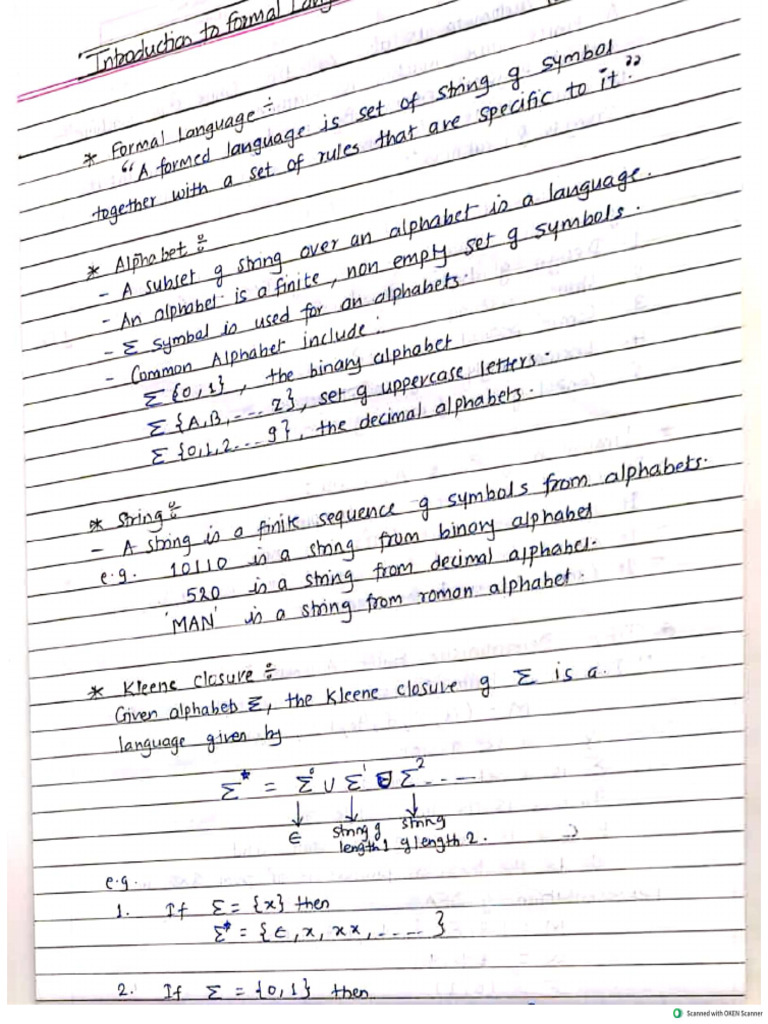 Introduction to Formal Lang
* Formal Language ÷
"A formed language is set of string g symbol
together with a set of rules that are specific to it."
* Alphabet ÷
- A subset g string over an alphabet is a language.
- An alphabet is a finite, non empty set g symbols.
- Σ symbol is used for an alphabets.
- Common Alphabet include :
Σ {0,1} , the binary alphabet
Σ {A,B,-... Z}, set g uppercase letters.
Σ {0,1,2...9}, the decimal alphabets.
* String ÷
- A string is a finite sequence g symbols from alphabets.
e.g. 10110 is a string from binary alphabet
520 is a string from decimal alphabet.
'MAN' is a string from roman alphabet.
* Kleene closure ÷
Given alphabets Σ, the Kleene closure g Σ is a.
language given by
Σ* = Σ⁰ ∪ Σ¹ ∪ Σ² ----
↓ ↓ ↓
ϵ string g string
length 1 g length 2.
e.g.
1. If Σ = {x} then
Σ* = {ϵ, x, xx, .... }
2. If Σ = {0,1} then
Scanned with OKEN Scanner